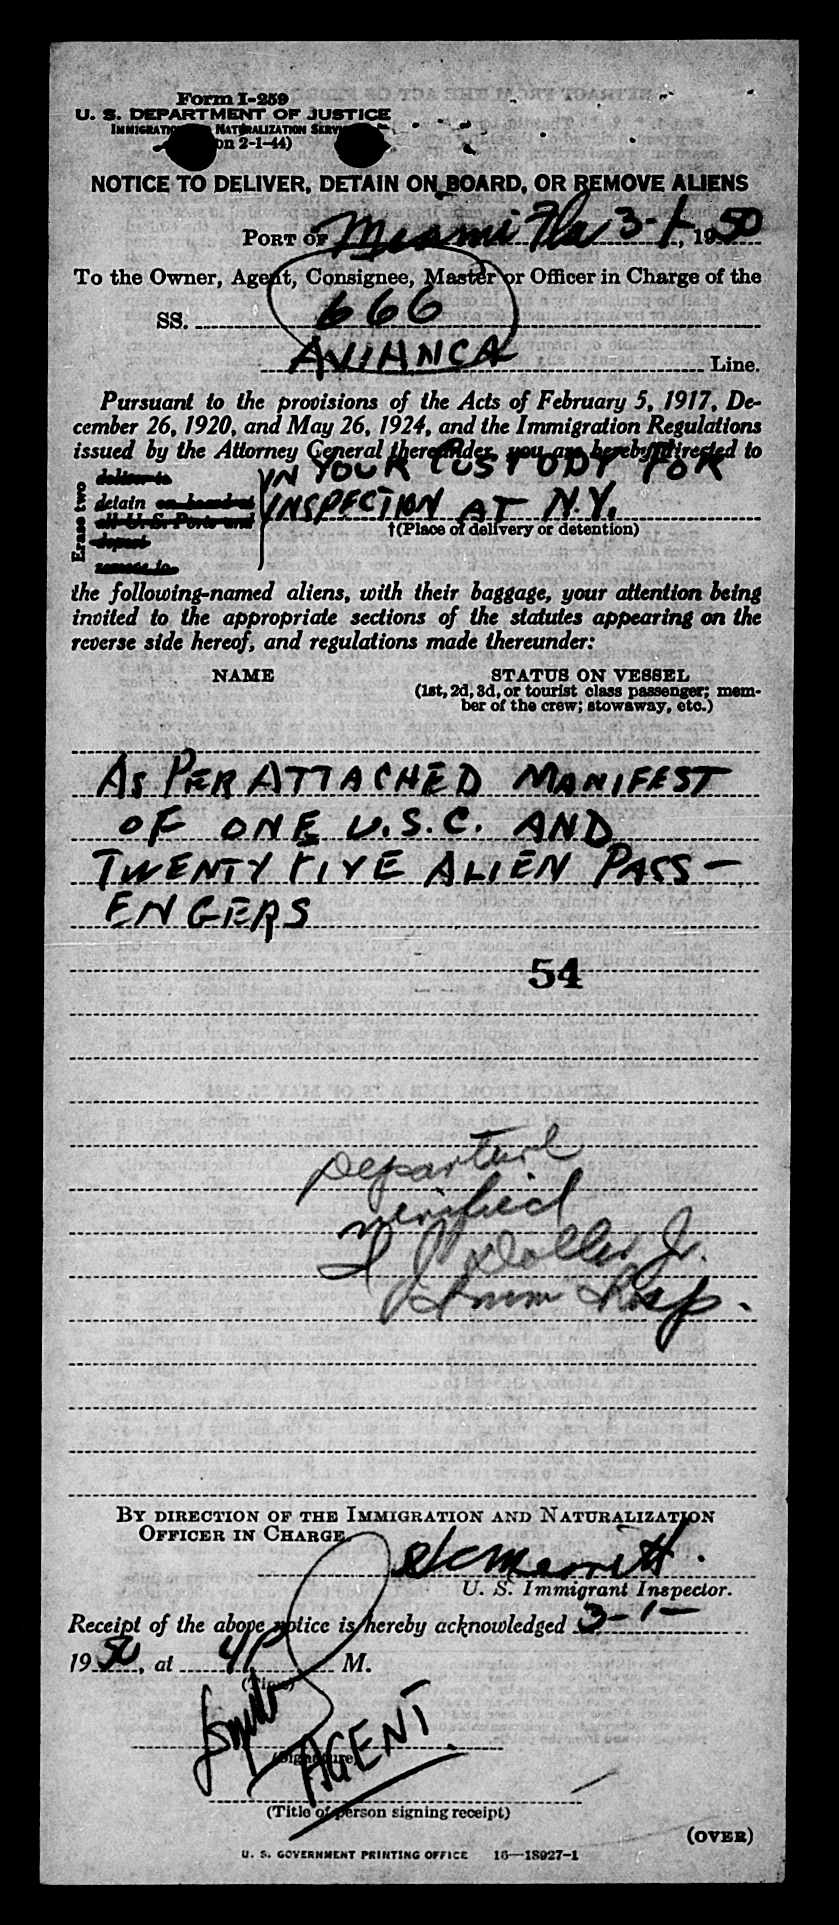 Form I-259
U. S. DEPARTMENT OF JUSTICE
IMMIGRATION NATURALIZATION SERV
on 2-1-44)
NOTICE TO DELIVER, DETAIN ON BOARD, OR REMOVE ALIENS
PORT OF Miami Fla 3-1, 1950
To the Owner, Agent, Consignee, Master or Officer in Charge of the
SS. 666
AVIANCA Line.
Pursuant to the provisions of the Acts of February 5, 1917, De-
cember 26, 1920, and May 26, 1924, and the Immigration Regulations
issued by the Attorney General thereunder, you are hereby directed to
Erase two
deliver to
detain on board at
all U. S. Ports and
depart
remove to
IN YOUR CUSTODY FOR
INSPECTION AT N.Y.
†(Place of delivery or detention)
the following-named aliens, with their baggage, your attention being
invited to the appropriate sections of the statutes appearing on the
reverse side hereof, and regulations made thereunder:
NAME STATUS ON VESSEL
(1st, 2d, 3d, or tourist class passenger; mem-
ber of the crew; stowaway, etc.)
AS PER ATTACHED MANIFEST
OF ONE U.S.C. AND
TWENTY FIVE ALIEN PASS-
ENGERS
54
Departure
verified
Jr.
Imm Insp.
BY DIRECTION OF THE IMMIGRATION AND NATURALIZATION
OFFICER IN CHARGE
Merritt
U. S. Immigrant Inspector.
Receipt of the above notice is hereby acknowledged 3-1-
1950, at 4P M.
(Time)
AGENT.
(Signature)
(Title of person signing receipt)
(OVER)
U. S. GOVERNMENT PRINTING OFFICE 16—18927-1